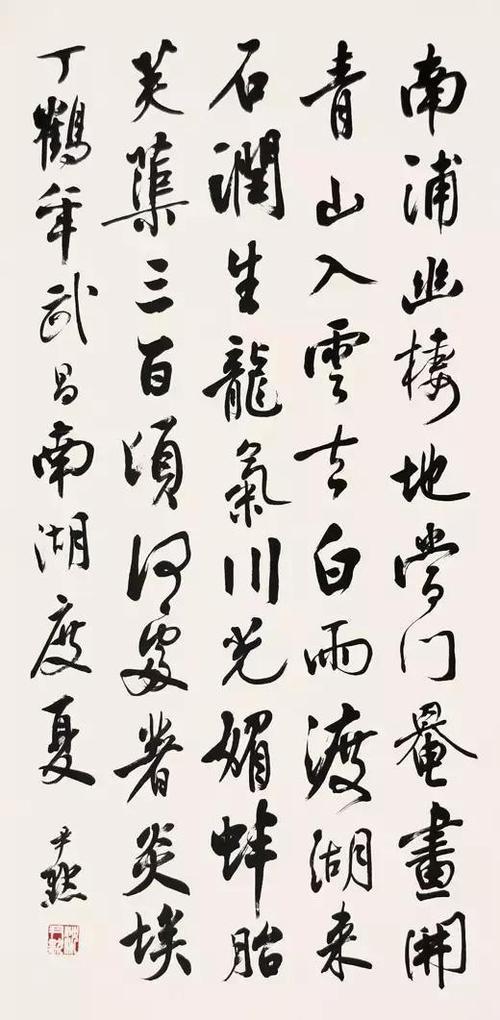 南浦幽棲地當門罨畫開
青山入雲去白雨渡湖來
石潤生龍氣川光媚蚌胎
芙蕖三百頃何處著炎埃
丁鶴年武昌南湖度夏 尹默